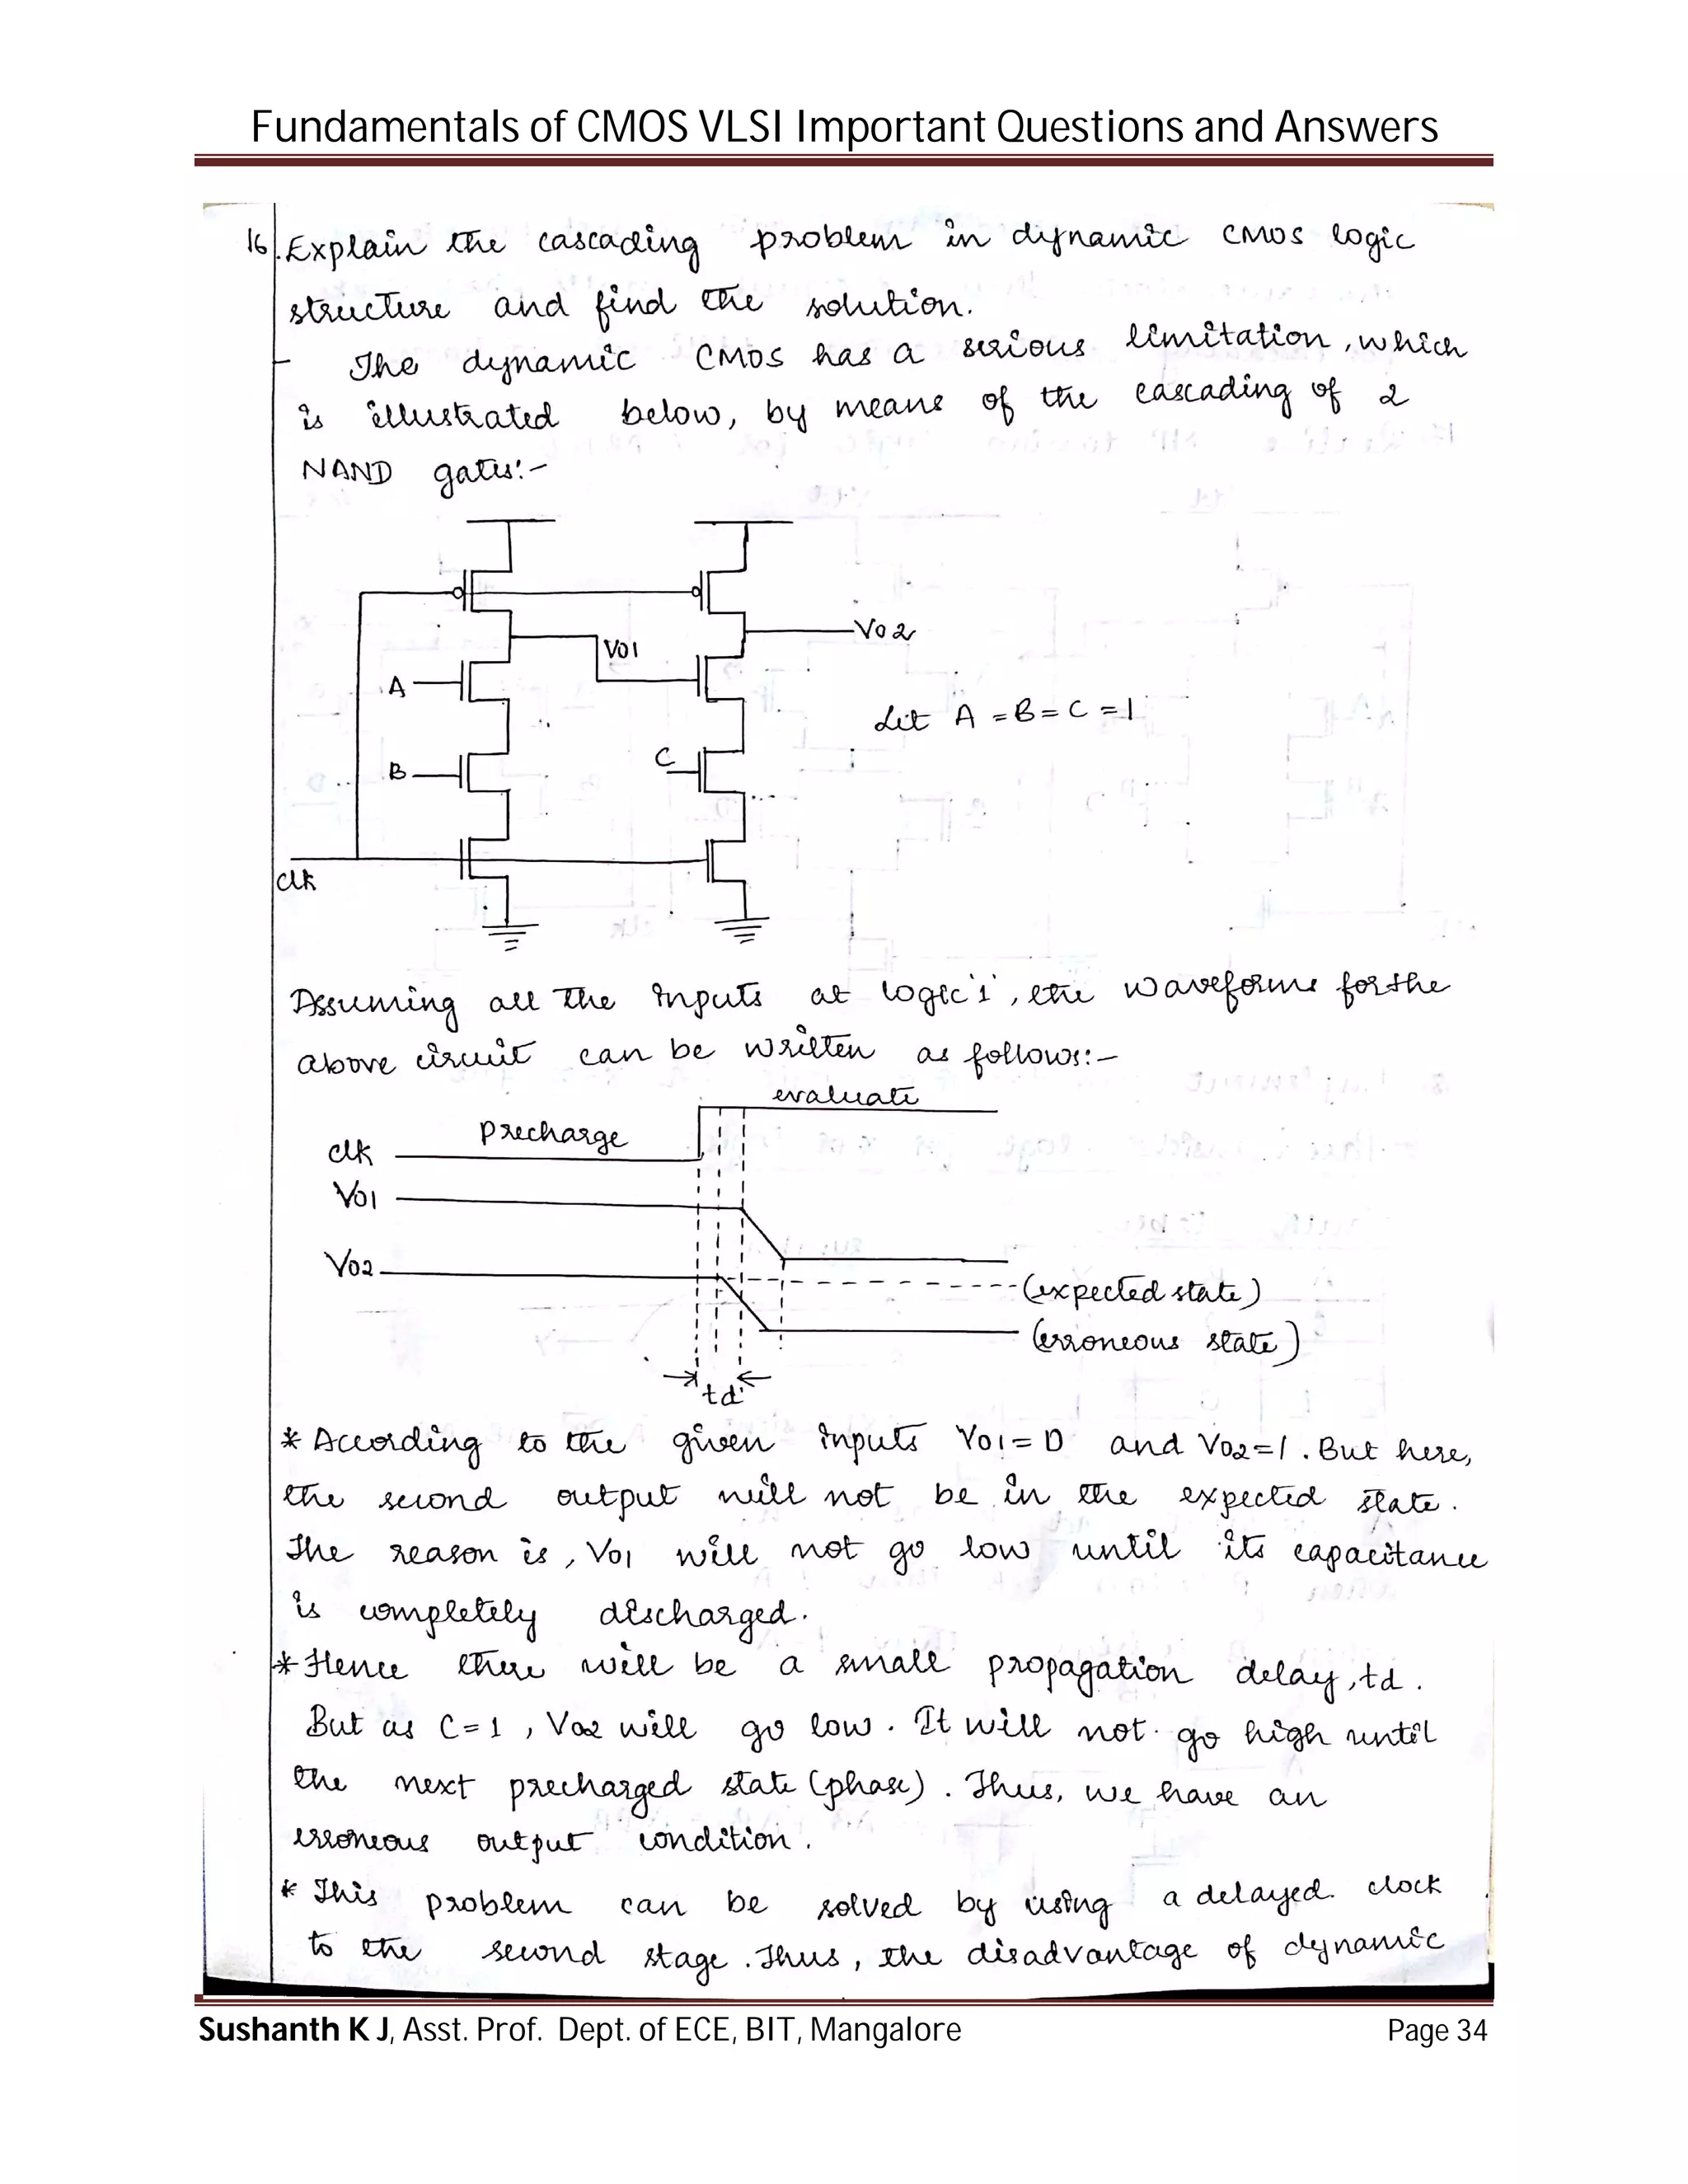 Fundamentals of CMOS VLSI Important Questions and Answers
16. Explain the cascading problem in dynamic CMOS logic
structure and find the solution.
- The dynamic CMOS has a serious limitation, which
is illustrated below, by means of the cascading of 2
NAND gates:-
Vo2
Vo1
A
Let A = B = C = 1
B
C
clk
Assuming all the inputs at logic '1', the waveforms for the
above circuit can be written as follows:-
evaluate
precharge
clk
Vo1
Vo2
(expected state)
(erroneous state)
td
* According to the given inputs Vo1 = 0 and Vo2 = 1. But here,
the second output will not be in the expected state.
The reason is, Vo1 will not go low until its capacitance
is completely discharged.
* Hence there will be a small propagation delay, td.
But as C = 1, Vo2 will go low. It will not go high until
the next precharged state (phase). Thus, we have an
erroneous output condition.
* This problem can be solved by using a delayed clock
to the second stage. Thus, the disadvantage of dynamic
Sushanth K J, Asst. Prof. Dept. of ECE, BIT, Mangalore
Page 34